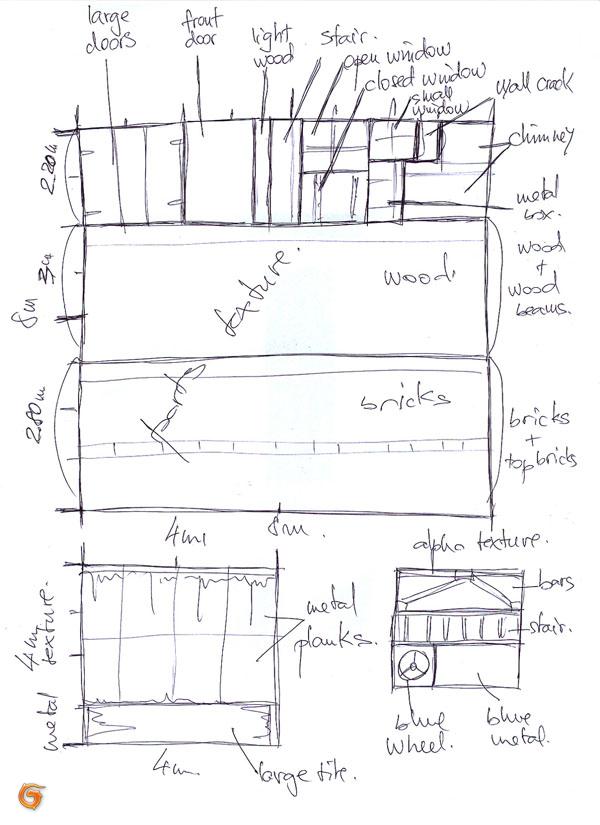 large
doors
front
door
light
wood
stair.
open window
closed window
small
window
wall crack
chimney
metal
box.
2.20m
3m
8m
2.80m
texture.
wood
wood
+
wood
beams.
parts
bricks
bricks
+
top bricks
4m
8m.
alpha texture.
bars
stair.
blue
wheel.
blue
metal.
metal
planks.
metal 4m texture.
4m.
large tile.
G